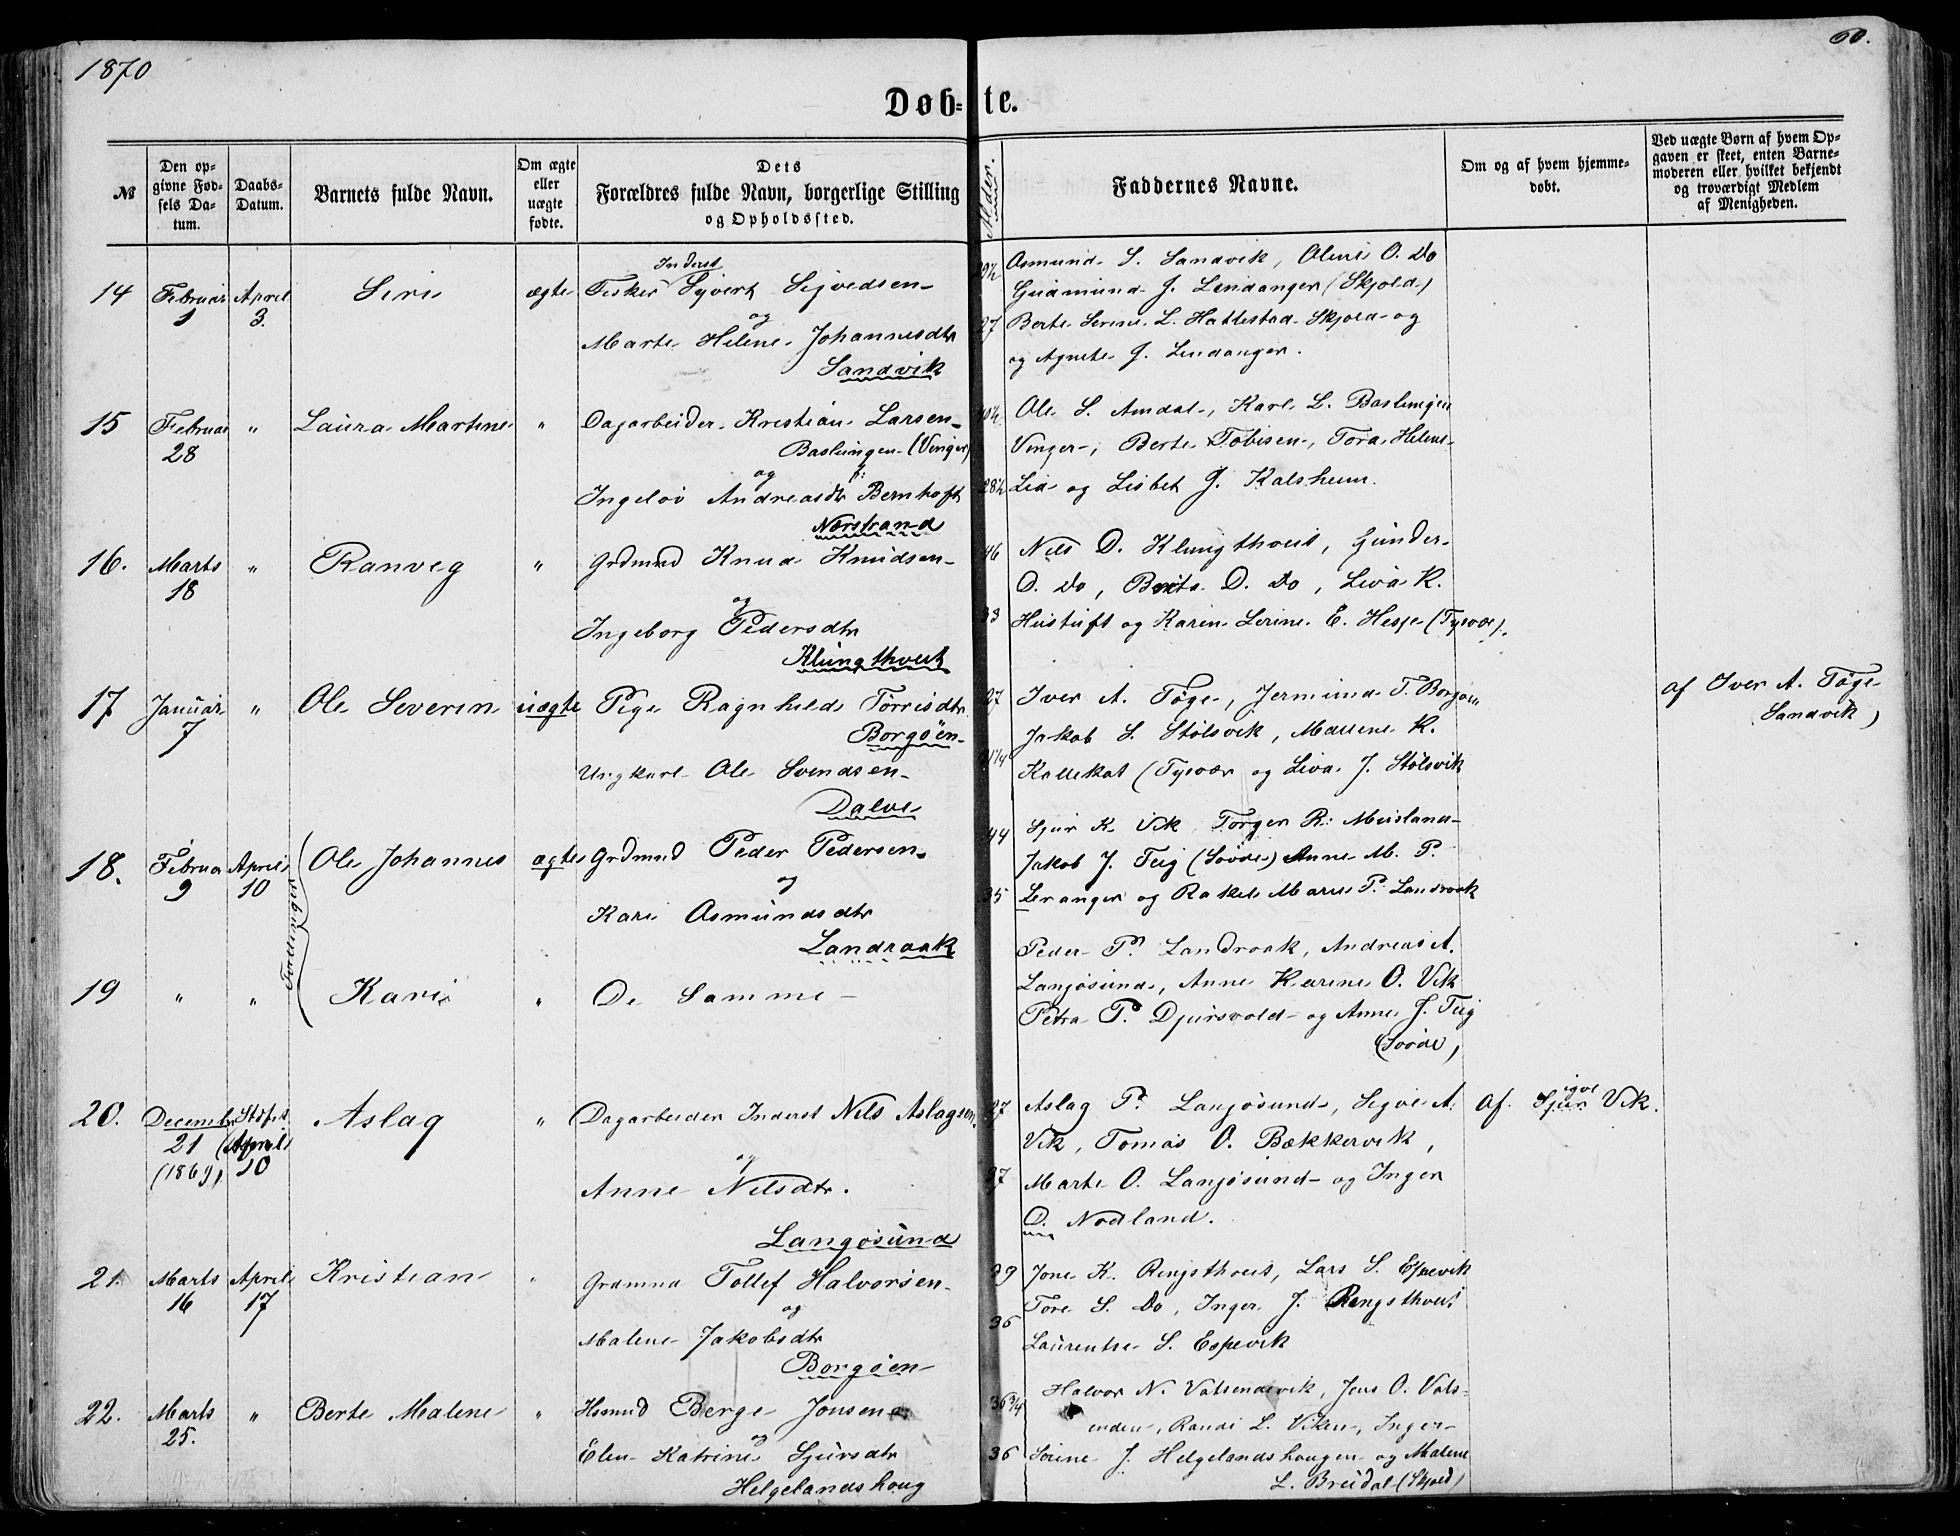 1870
60.
Døb-te.
№
Den opgivne Fødsels Datum.
Daabs-Datum.
Barnets fulde Navn.
Om ægte eller uægte fødte.
Dets
Forældres fulde Navn, borgerlige Stilling
og Opholdssted.
Alder.
Faddernes Navne.
Om og af hvem hjemmedøbt.
Ved uægte Børn af hvem Opgaven er skeet, enten Barnemoderen eller hvilket bekjendt og troværdigt Medlem af Menigheden.
14 Februar 1 April 3. Siri ægte
Inderst
Fisker Syvert Sigvedsen
og
Marte Helene Johannesdtr
Sandvik
27
Asmund S. Sandvik, Oline O. Do
Gudmund J. Lindanger (Skjold)
Berte Serine L. Hattestad Skjold og
og Agnete J. Lindanger.
15 Februar 28 " Laura Martine "
Dagarbeider Kristian Larsen
Baslingen (Vinger)
og
Ingeløv Andreasdtr Bernhoft
Nerstrand
28½
Ole S. Amdal, Karl L. Baslingen
Vinger, Berte Tobisen, Tora Helene
Lia og Lisbet J. Kalsheim.
16. Marts 18 " Ranveg "
Grdmnd Knud Knudsen
og
Ingeborg Pedersdtr
Klungthveit
46
33
Nils D. Klungthveit, Gunder
D. Do, Berta D. Do, Liva K.
Hustuft og Karen Serine E. Hesje (Tysvær).
17 Januar 7 " Ole Severin uægte
Pige Ragnhild Torrisdtr
Borgøen
Ungkarl Ole Svendsen
Dalve
27
Iver A. Tøge, Jermund T. Borgøen
Jakob S. Stølsvik, Mallene K.
Kallekot (Tysvær og Liva J. Stølsvik
af Iver A. Tøge
Sandvik)
18. Februar 9 April 10 Ole Johannes ægte
Tvillinger
Grdmnd Peder Pedersen
og
Kari Asmundsdtr
Landraak
44
35
Sjur K. Vik, Torger R. Misland
Jakob J. Teig (Sovde) Anne M. P.
Leranger og Rakel Marie P. Landraak
19 " " Kari "
De Samme
Peder P. Landraak, Andreas A.
Langøsund, Anne Karine O. Vik
Petra P. Djursvold og Anne J. Teig
(Sovde)
20. December 21 (1869) Stafst. (April 10 Aslag "
Dagarbeider Inderst Nils Aslagsen
og
Anne Nilsdtr.
Langøsund
27
37
Aslag P. Langøsund, Sigve A.
Vik, Tomas O. Bækkervik,
Marte O. Langøsund og Inger
D. Nodland.
af. Sjur Vik.
21. Marts 16 April 17 Kristian "
Grdmnd Tollef Halvorsen
og
Malene Jakobsdtr
Borgøen
39
36
Jone K. Ringsthveit, Lars S. Espevik
Tore S. Do, Inger J. Ringsthveit
Laurentse S. Espevik
22. Marts 25. " Berte Malene "
Hsmnd Berge Jonsen
og
Elen Katrine Sjursdtr
Helgelandshoug
36¾
36
Halvor N. Vatsendvik, Jens O. Vats-
enden, Randi L. Viken, Inger
Serine J. Helgelandshougen og Malene
L. Breidal (Skjold)